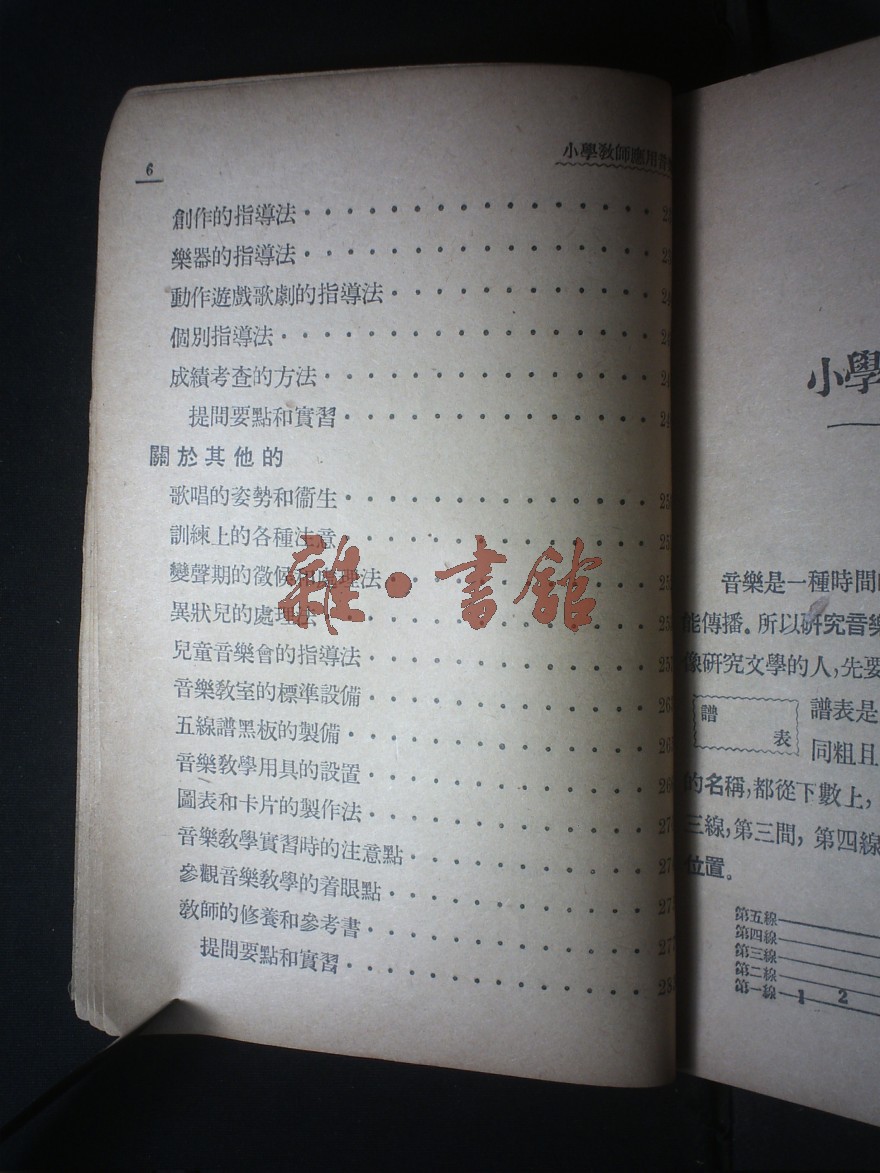 6
小學教師應用音
創作的指導法
樂器的指導法
動作遊戲歌劇的指導法
個別指導法
成績考查的方法
提問要點和實習
關於其他的
歌唱的姿勢和衞生
訓練上的各種注意
變聲期的徵候和處理法
異狀兒的處理法
兒童音樂會的指導法
音樂教室的標準設備
五線譜黑板的製備
音樂教學用具的設置
圖表和卡片的製作法
音樂教學實習時的注意點
參觀音樂教學的着眼點
教師的修養和參考書
提問要點和實習
雜·書館
小學
音樂是一種時間
能傳播。所以研究音樂
像研究文學的人,先要
譜表
譜表是
同粗且
的名稱,都從下數上,
三線,第三間,第四線
位置。
第五線
第四線
第三線
第二線
第一線 1 2